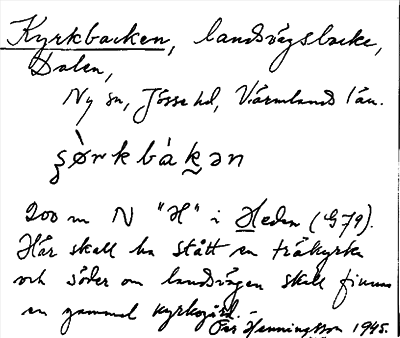 Kyrkbacken, landsvägsbacke,
Dalen,
Ny sn, Jösse hd, Värmlands län.
200 m N "H" i Heden (G79).
Här skall ha stått en träkyrka
och söder om landsvägen skall finnas
en gammal kyrkogård.
Per Henningsson 1945.